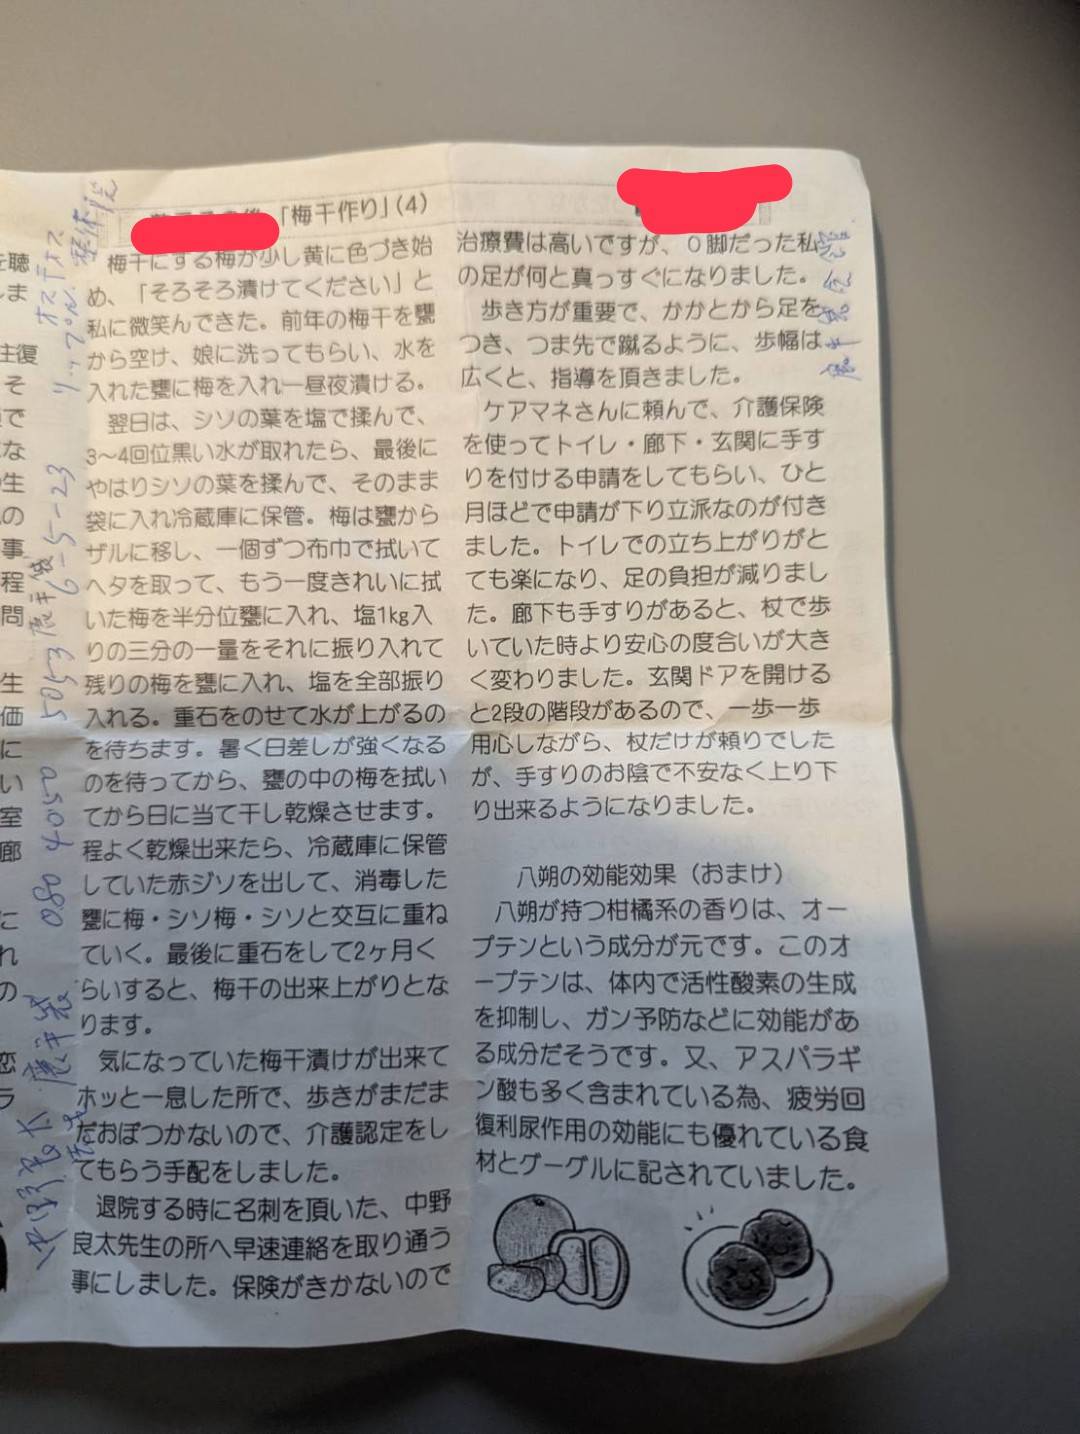 「梅干作り」(4)
梅干にする梅が少し黄に色づき始
め、「そろそろ漬けてください」と
私に微笑んできた。前年の梅干を甕
から空け、娘に洗ってもらい、水を
入れた甕に梅を入れ一昼夜漬ける。
翌日は、シソの葉を塩で揉んで、
3〜4回位黒い水が取れたら、最後に
やはりシソの葉を揉んで、そのまま
袋に入れ冷蔵庫に保管。梅は甕から
ザルに移し、一個ずつ布巾で拭いて
ヘタを取って、もう一度きれいに拭
いた梅を半分位甕に入れ、塩1kg入
りの三分の一量をそれに振り入れて
残りの梅を甕に入れ、塩を全部振り
入れる。重石をのせて水が上がるの
を待ちます。暑く日差しが強くなる
のを待ってから、甕の中の梅を拭い
てから日に当て干し乾燥させます。
程よく乾燥出来たら、冷蔵庫に保管
していた赤ジソを出して、消毒した
甕に梅・シソ梅・シソと交互に重ね
ていく。最後に重石をして2ヶ月く
らいすると、梅干の出来上がりとな
ります。
気になっていた梅干漬けが出来て
ホッと一息した所で、歩きがまだま
だおぼつかないので、介護認定をし
てもらう手配をしました。
退院する時に名刺を頂いた、中野
良太先生の所へ早速連絡を取り通う
事にしました。保険がきかないので
治療費は高いですが、O脚だった私
の足が何と真っすぐになりました。
歩き方が重要で、かかとから足を
つき、つま先で蹴るように、歩幅は
広くと、指導を頂きました。
ケアマネさんに頼んで、介護保険
を使ってトイレ・廊下・玄関に手す
りを付ける申請をしてもらい、ひと
月ほどで申請が下り立派なのが付き
ました。トイレでの立ち上がりがと
ても楽になり、足の負担が減りまし
た。廊下も手すりがあると、杖で歩
いていた時より安心の度合いが大き
く変わりました。玄関ドアを開ける
と2段の階段があるので、一歩一歩
用心しながら、杖だけが頼りでした
が、手すりのお陰で不安なく上り下
り出来るようになりました。
八朔の効能効果（おまけ）
八朔が持つ柑橘系の香りは、オー
プテンという成分が元です。このオ
ープテンは、体内で活性酸素の生成
を抑制し、ガン予防などに効能があ
る成分だそうです。又、アスパラギ
ン酸も多く含まれている為、疲労回
復利尿作用の効能にも優れている食
材とグーグルに記されていました。
080 4050 5053
6-5-23